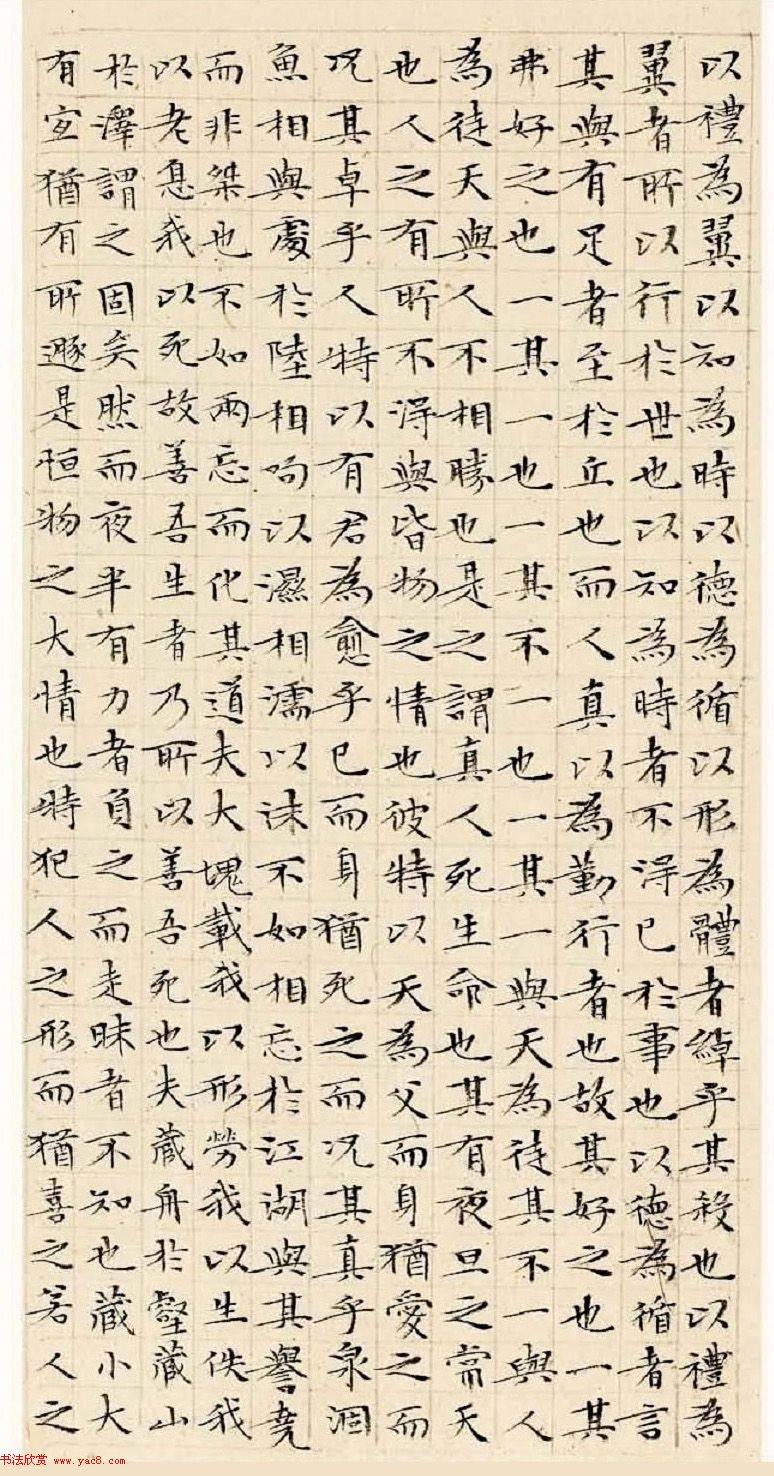 以禮為翼以知為時以德為循以形為體者綽乎其殺也以禮為
翼者所以行於世也以知為時者不得已於事也以德為循者言
其與有足者至於丘也而人真以為勤行者也故其好之也一其
弗好之也一其一也一其不一也一其一與天為徒其不一與人
為徒天與人不相勝也是之謂真人死生命也其有夜旦之常天
也人之有所不得與皆物之情也彼特以天為父而身猶愛之而
况其卓乎人特以有君為愈乎已而身猶死之而况其真乎泉涸
魚相與處於陸相呴以濕相濡以沫不如相忘於江湖與其譽堯
而非桀也不如兩忘而化其道夫大塊載我以形勞我以生佚我
以老息我以死故善吾生者乃所以善吾死也夫藏舟於壑藏山
於澤謂之固矣然而夜半有力者負之而走昧者不知也藏小大
有宜猶有所遯是恒物之大情也特犯人之形而猶喜之若人之
书法欣赏 www.yac8.com